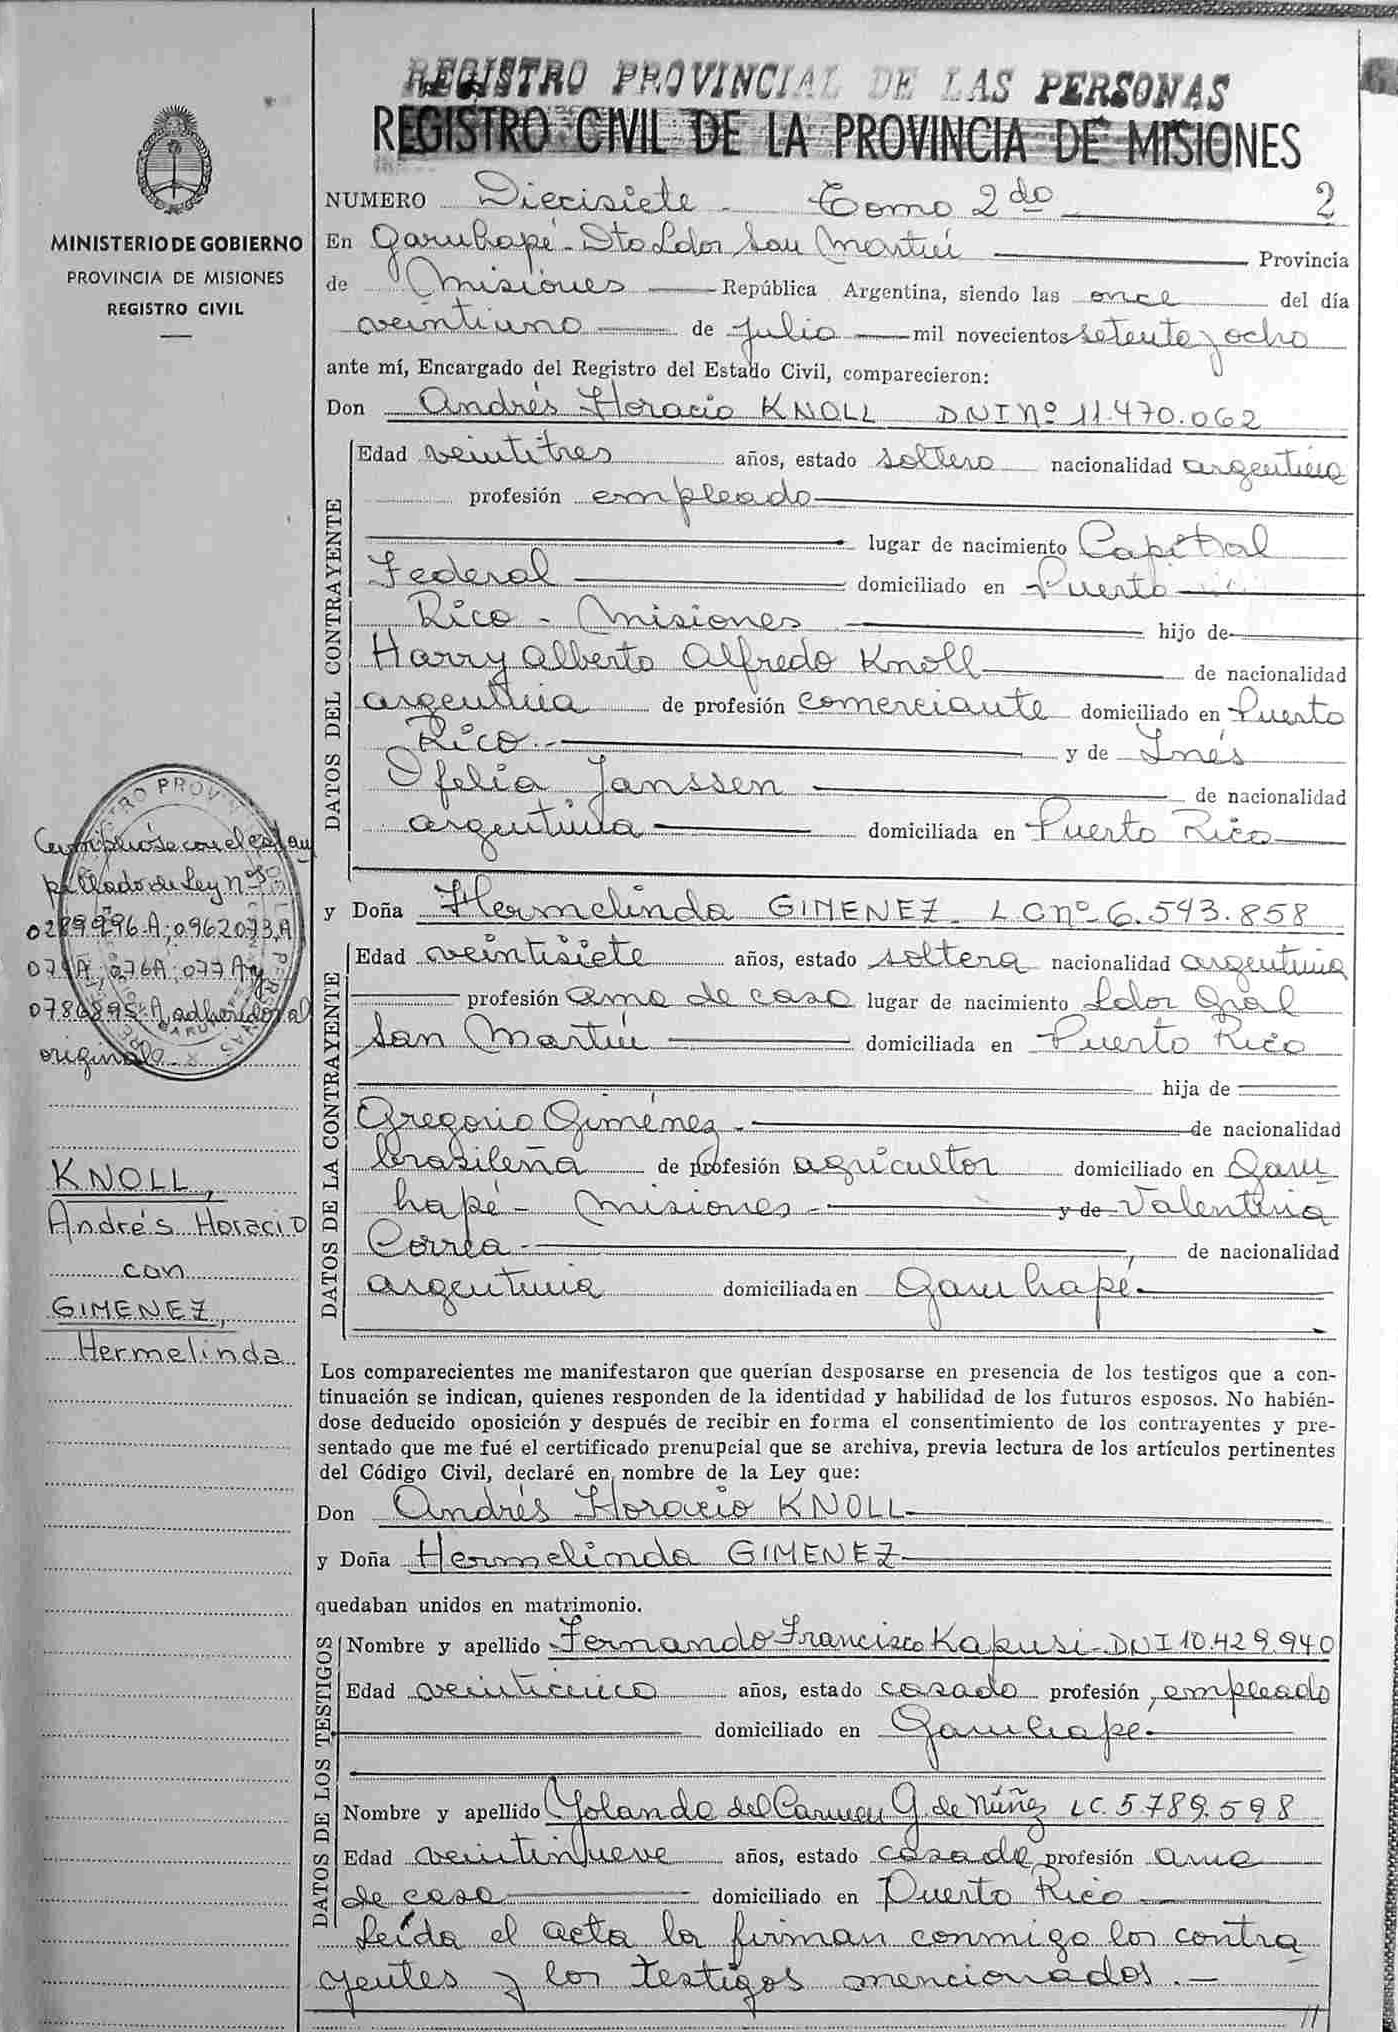 REGISTRO PROVINCIAL DE LAS PERSONAS
REGISTRO CIVIL DE LA PROVINCIA DE MISIONES
MINISTERIO DE GOBIERNO
PROVINCIA DE MISIONES
REGISTRO CIVIL
NUMERO Diecisiete - Tomo 2do 2
En Garuhapé - Dto Ldor San Martín Provincia
de Misiones República Argentina, siendo las once del día
veintiuno de Julio mil novecientos setenta y ocho
ante mí, Encargado del Registro del Estado Civil, comparecieron:
Don Andrés Horacio KNOLL DNI Nº 11.470.062
DATOS DEL CONTRAYENTE
Edad veintitres años, estado soltero nacionalidad argentina
profesión empleado
lugar de nacimiento Capital
Federal domiciliado en Puerto
Rico - Misiones hijo de
Harry Alberto Alfredo Knoll de nacionalidad
argentina de profesión comerciante domiciliado en Puerto
Rico.- y de Inés
Ofelia Janssen de nacionalidad
argentina domiciliada en Puerto Rico
Cumplióse con el estam
pillado de Ley Nos
0289996-A; 0962073A
075A; 076A; 077A y
0786895-A adheridos al
original
y Doña Hermelinda GIMENEZ - L.C nº 6.543.858
DATOS DE LA CONTRAYENTE
Edad veintisiete años, estado soltera nacionalidad argentina
profesión ama de casa lugar de nacimiento Ldor Gral
San Martín domiciliada en Puerto Rico
hija de
Gregorio Giménez.- de nacionalidad
brasileña de profesión agricultor domiciliado en Garu
hapé - Misiones - y de Valentina
Correa - de nacionalidad
argentina domiciliada en Garuhapé
KNOLL,
Andrés Horacio
con
GIMENEZ,
Hermelinda
Los comparecientes me manifestaron que querían desposarse en presencia de los testigos que a con-
tinuación se indican, quienes responden de la identidad y habilidad de los futuros esposos. No habién-
dose deducido oposición y después de recibir en forma el consentimiento de los contrayentes y pre-
sentado que me fué el certificado prenupcial que se archiva, previa lectura de los artículos pertinentes
del Código Civil, declaré en nombre de la Ley que:
Don Andrés Horacio KNOLL
y Doña Hermelinda GIMENEZ
quedaban unidos en matrimonio.
DATOS DE LOS TESTIGOS
Nombre y apellido Fernando Francisco Kapusi - DNI 10.429.940
Edad veinticinco años, estado casado profesión empleado
domiciliado en Garuhape
Nombre y apellido Yolanda del Carmen G. de Núñez LC. 5.789.598
Edad veintinueve años, estado casada profesión ama
de casa domiciliado en Puerto Rico
Leída el acta la firman conmigo los contra
yentes y los testigos mencionados.-
//